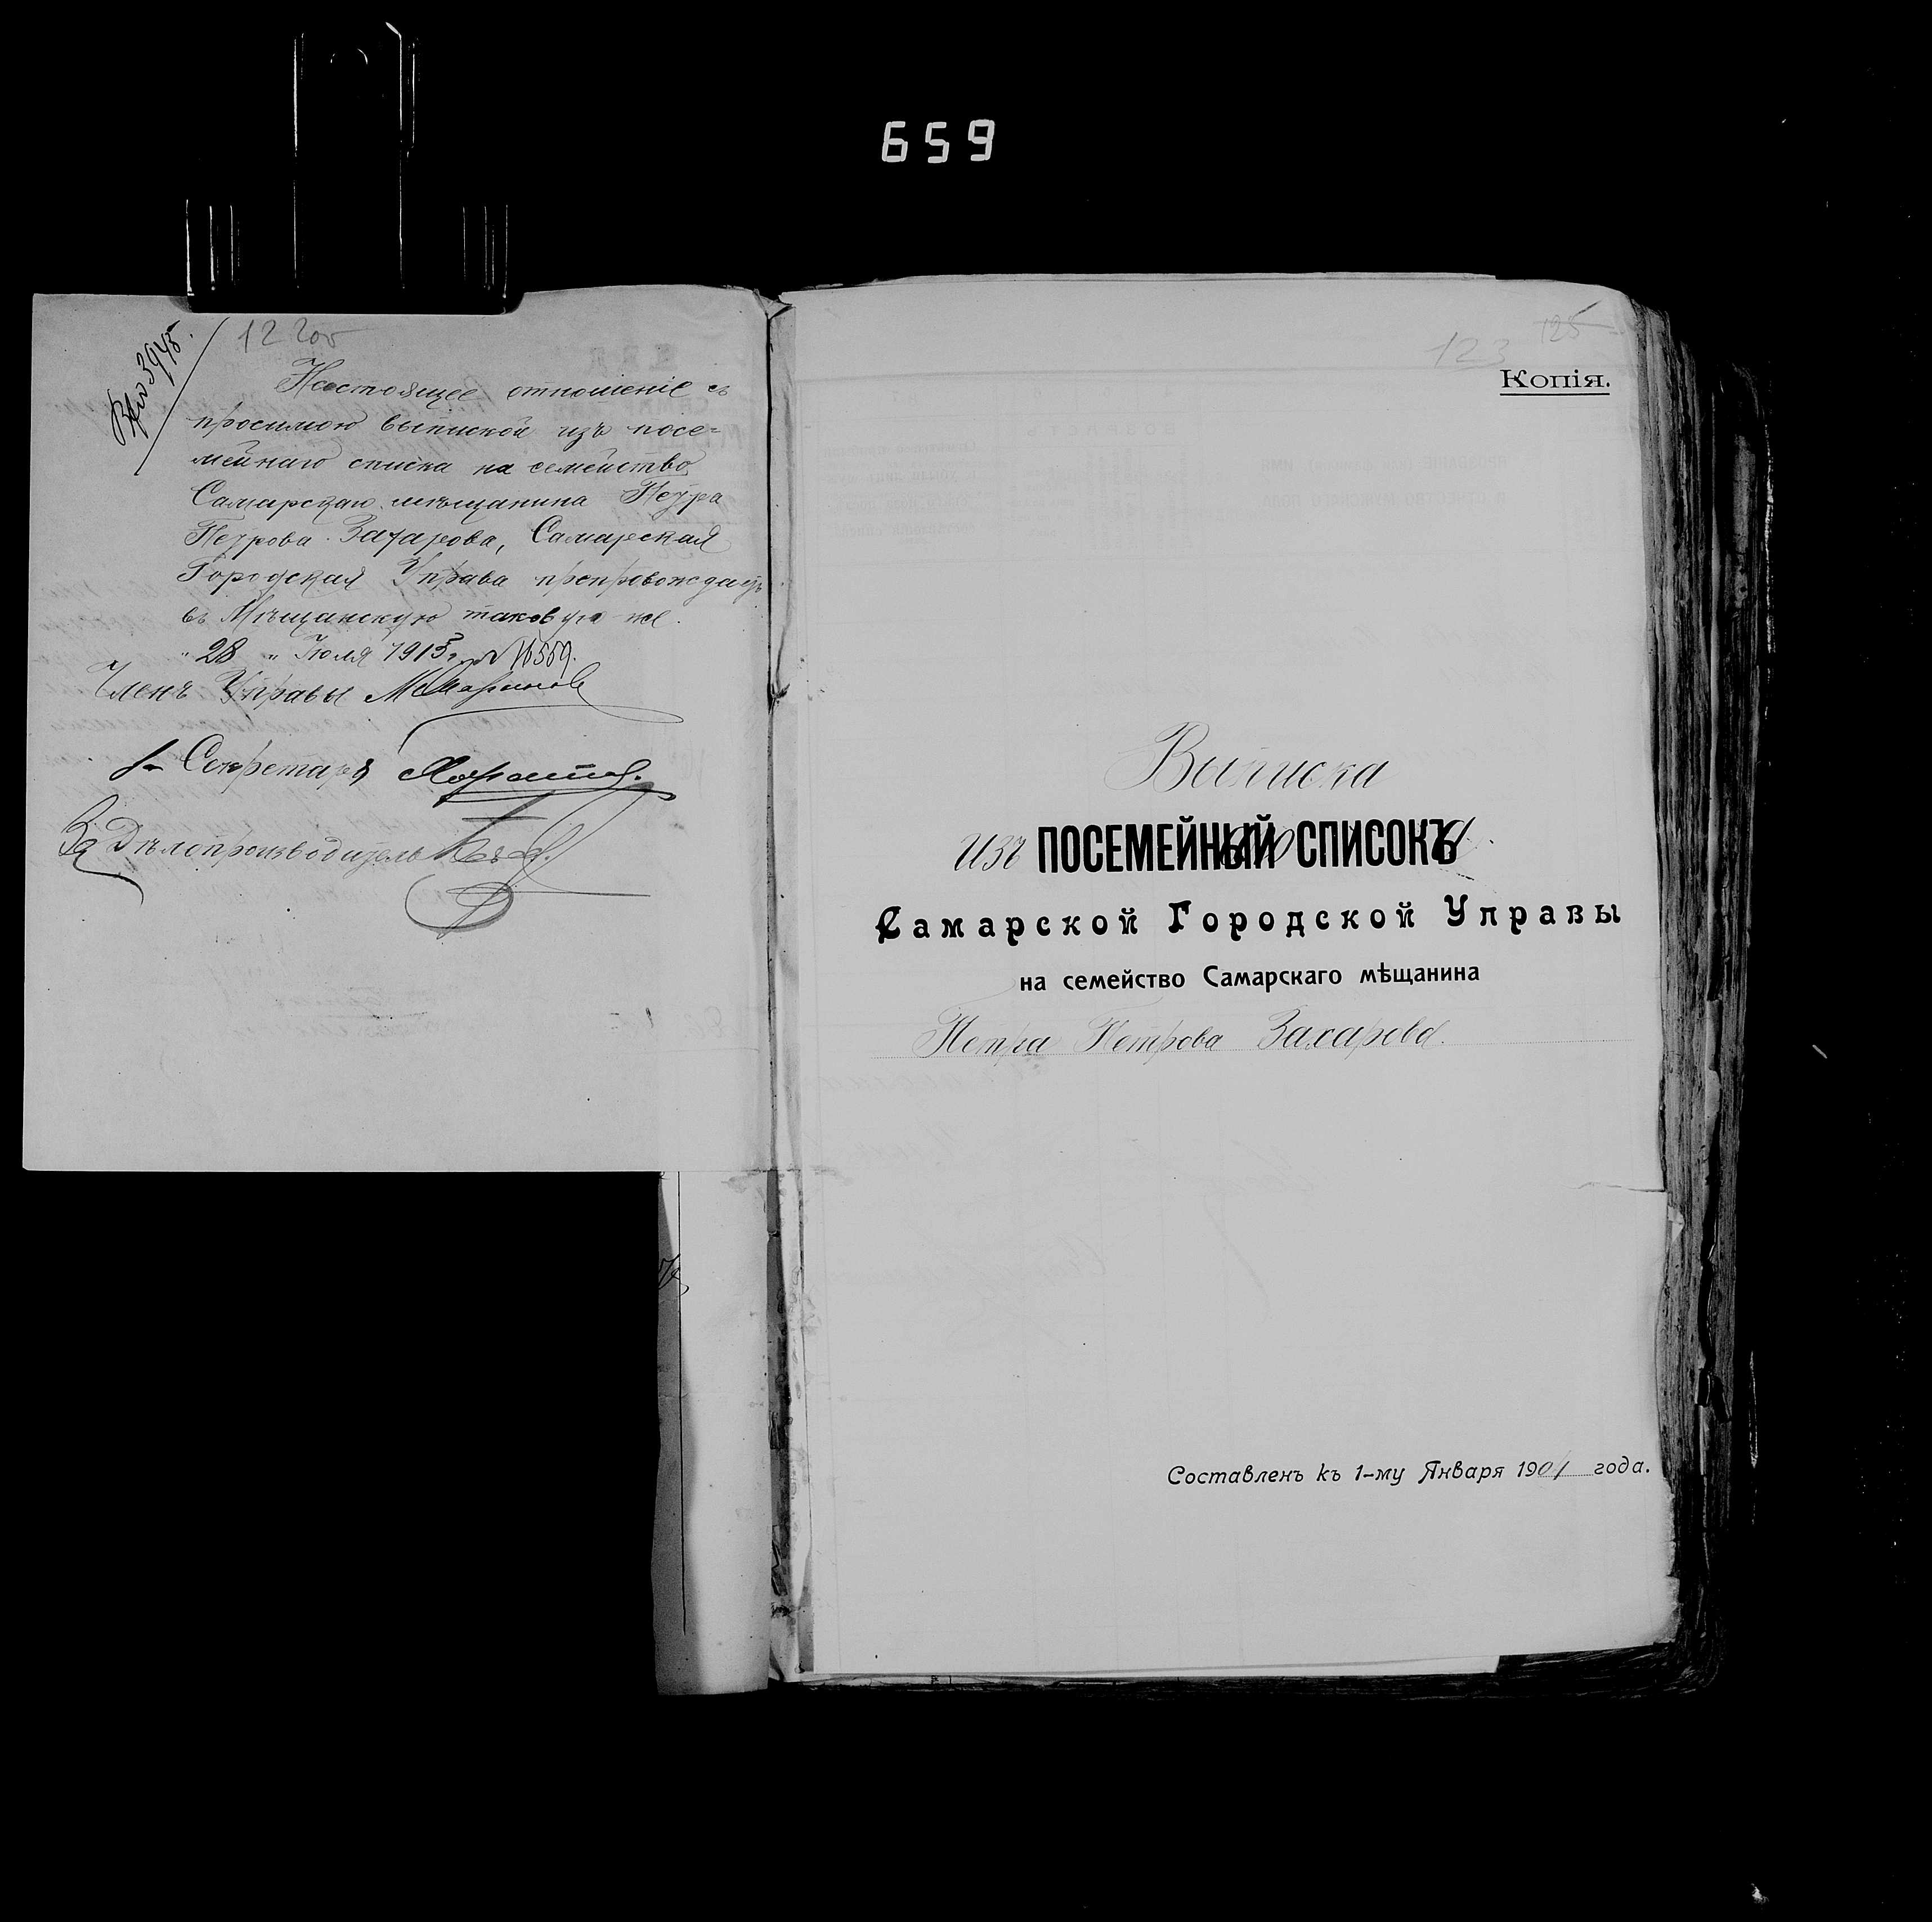 659
12 205
Вх. № 3945.
Настоящее отношеніе съ
просимою выпиской изъ посе=
мейнаго списка на семейство
Самарскаго мѣщанина Петра
Петрова Захарова, Самарская
Городская Управа препровождаетъ
въ Мѣщанскую таковую же.
"28" Іюля 1913 г. № 16559.
Членъ Управы
Секретаря
За Дѣлопроизводитель
125
123
Копія.
Выписка
изъ ПОСЕМЕЙНаго СПИСКа
Самарской Городской Управы
на семейство Самарскаго мѣщанина
Петра Петрова Захарова.
Составленъ къ 1-му Января 1901 года.